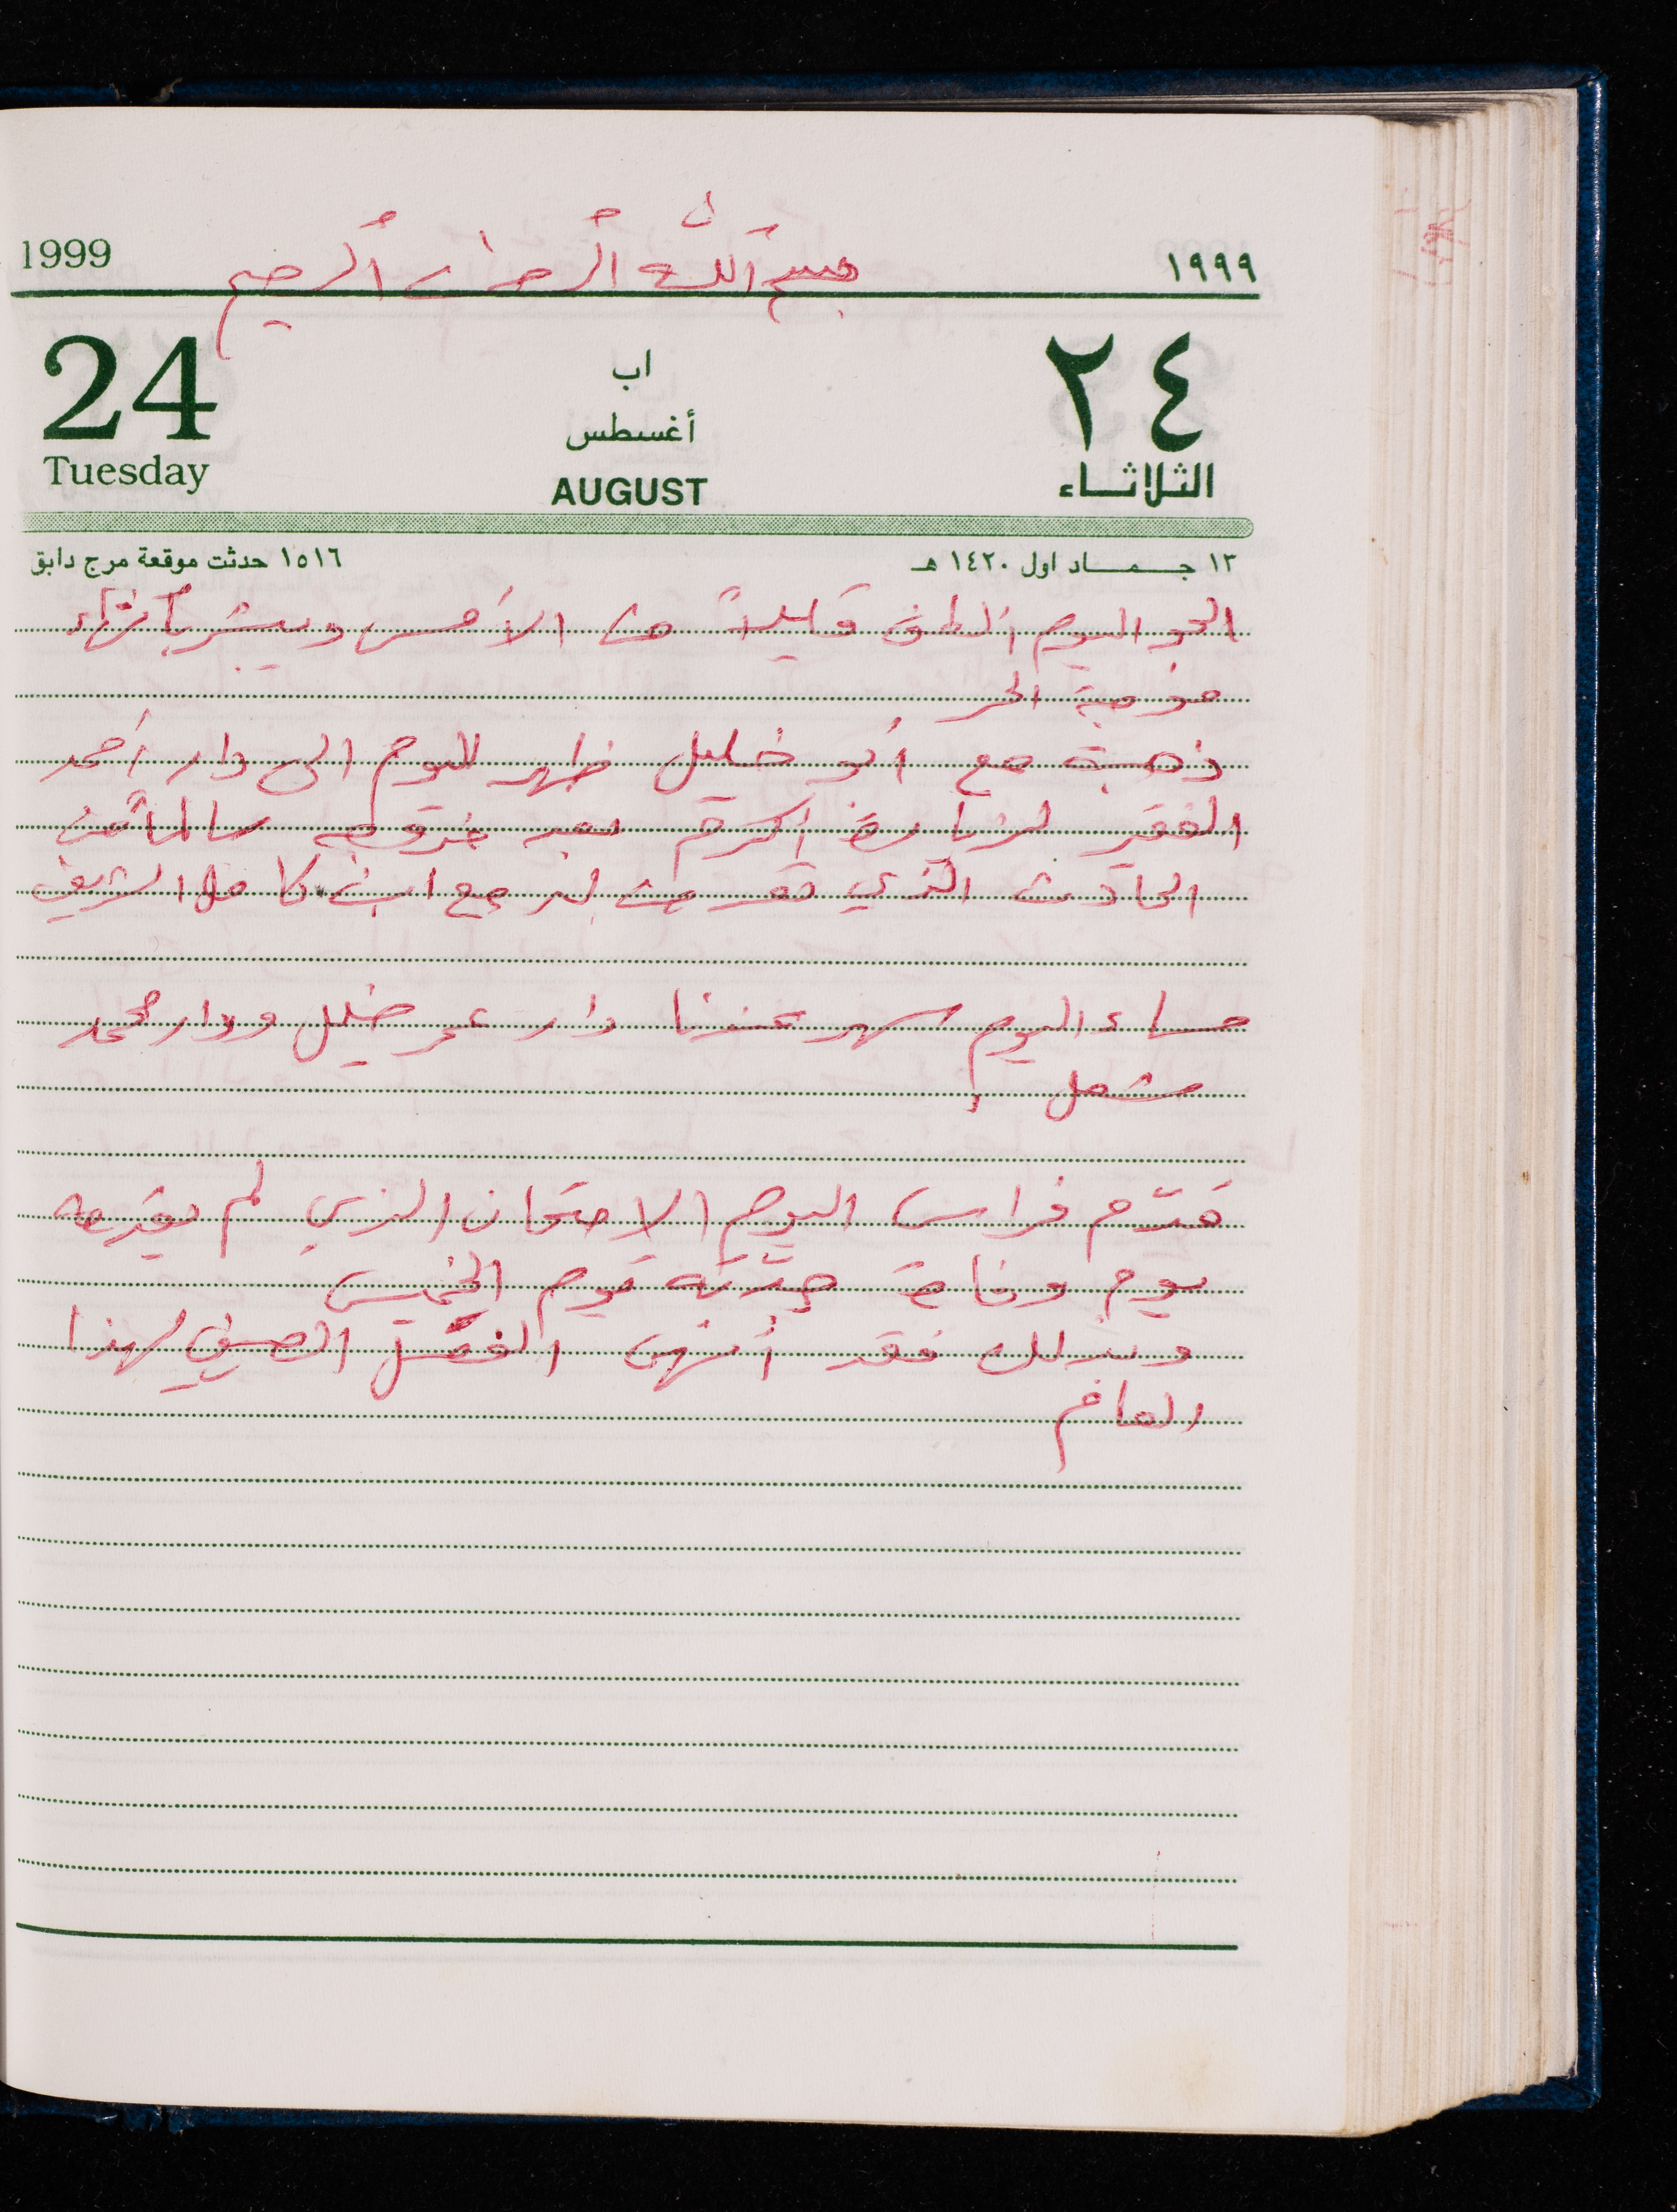 1999 بسم الله الرحمان الرحيم ١٩٩٩
24 اب ٢٤
أغسطس
Tuesday AUGUST الثلاثاء
١٣ جمـاد اول ١٤٢٠ هـ ١٥١٦ حدثت موقعة مرج دابق
الجو اليوم الطف قليلاً من الأمس ويبشر بانتهاء
موجة الحر
ذهبت مع أبو خليل ظهر اليوم الى دار أحمد
الفقير لزيارة أكرم بعد خروجه سالماً من
الحادث الذي تعرض له مع ابن كامل الشريف
مساء اليوم سهر عندنا دار عمر خليل ودار محمد
مشعل
قدّم فراس اليوم الامتحان الذي لم يقدمه
يوم وفاة جدّته يوم الخميس
وبذلك فقد أنهى الفصل الصيفي لهذا
العام